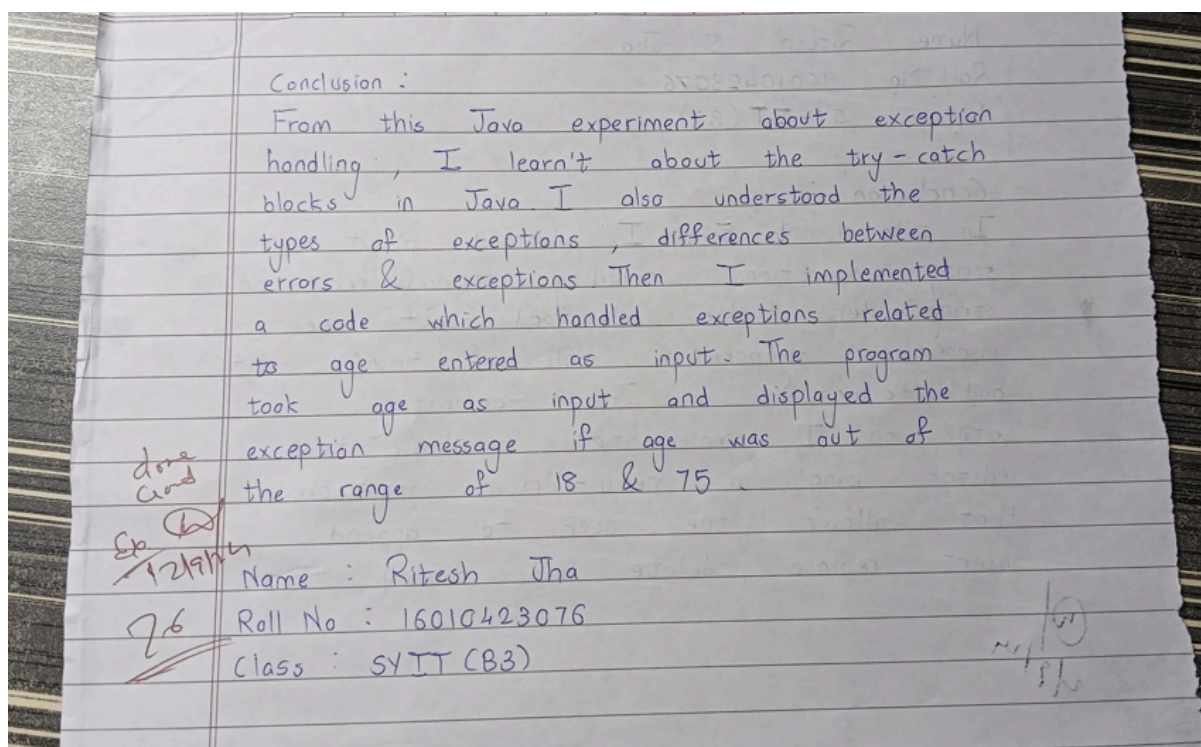 Conclusion :
From this Java experiment about exception
handling, I learn't about the try-catch
blocks in Java. I also understood the
types of exceptions, differences between
errors & exceptions Then I implemented
a code which handled exceptions related
to age entered as input. The program
took age as input and displayed the
exception message if age was out of
the range of 18 & 75
done
Good
12/9/24
Name : Ritesh Jha
76
Roll No : 16010423076
Class : SYIT (B3)